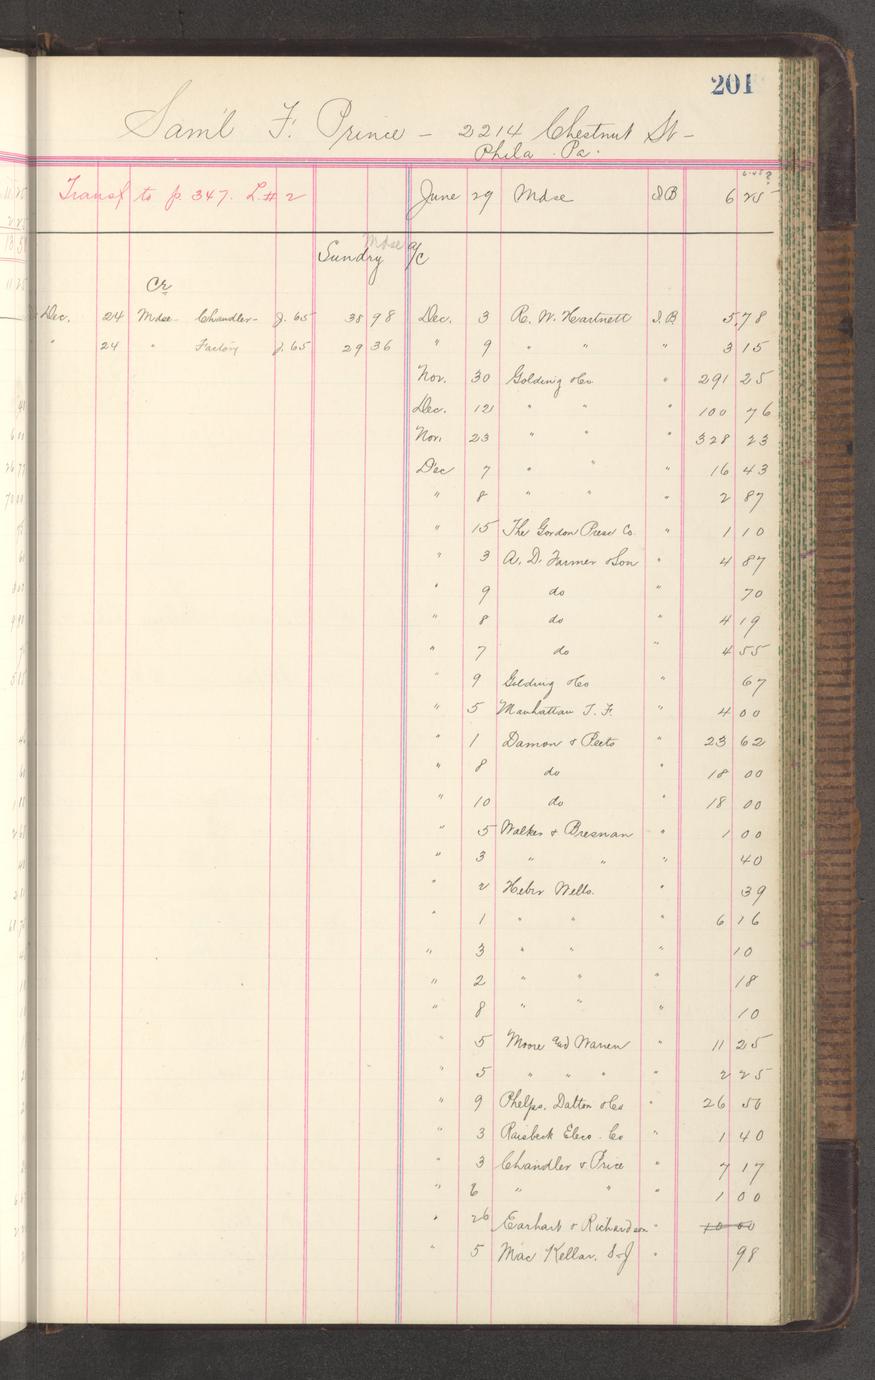 201
Sam'l F. Prince - 2214 Chestnut St -
Phila. Pa.
Transf to p 347. L. # 2 June 29 Mdse I.B 6 25
Mdse
Sundry a/c
Cr
Dec. 24 Mdse Chandler- J. 65 38 98 Dec. 3 R. W. Hartnett I.B. 5,78
" 24 " Factory J. 65 29 36 " 9 " " " 3 15
Nov. 30 Golding & Co " 291 25
Dec. 12 " " " 100 76
Nov. 23 " " " 328 23
Dec 7 " " " 16 43
" 8 " " " 2 87
" 15 The Gordon Press Co. " 1 10
" 3 A. D. Farmer & Son " 4 87
" 9 do " 70
" 8 do " 4 19
" 7 do " 4 55
" 9 Golding & Co " 67
" 5 Manhattan T. F. " 4 00
" 1 Damon & Peets " 23 62
" 8 do " 18 00
" 10 do " 18 00
" 5 Walker & Bresnan " 1 00
" 3 " " " 40
" 2 Heber Wells. " 39
" 1 " " " 6 16
" 3 " " " 10
" 2 " " " 18
" 8 " " " 10
" 5 Moore and Warren " 11 25
" 5 " " " " 2 25
" 9 Phelps, Dalton & Co " 26 50
" 3 Raisbeck Elec. Co " 1 40
" 3 Chandler & Price " 7 17
" 6 " " " 1 00
" 26 Earhart & Richardson " 10 00
" 5 Mac Kellar, S & J " 98